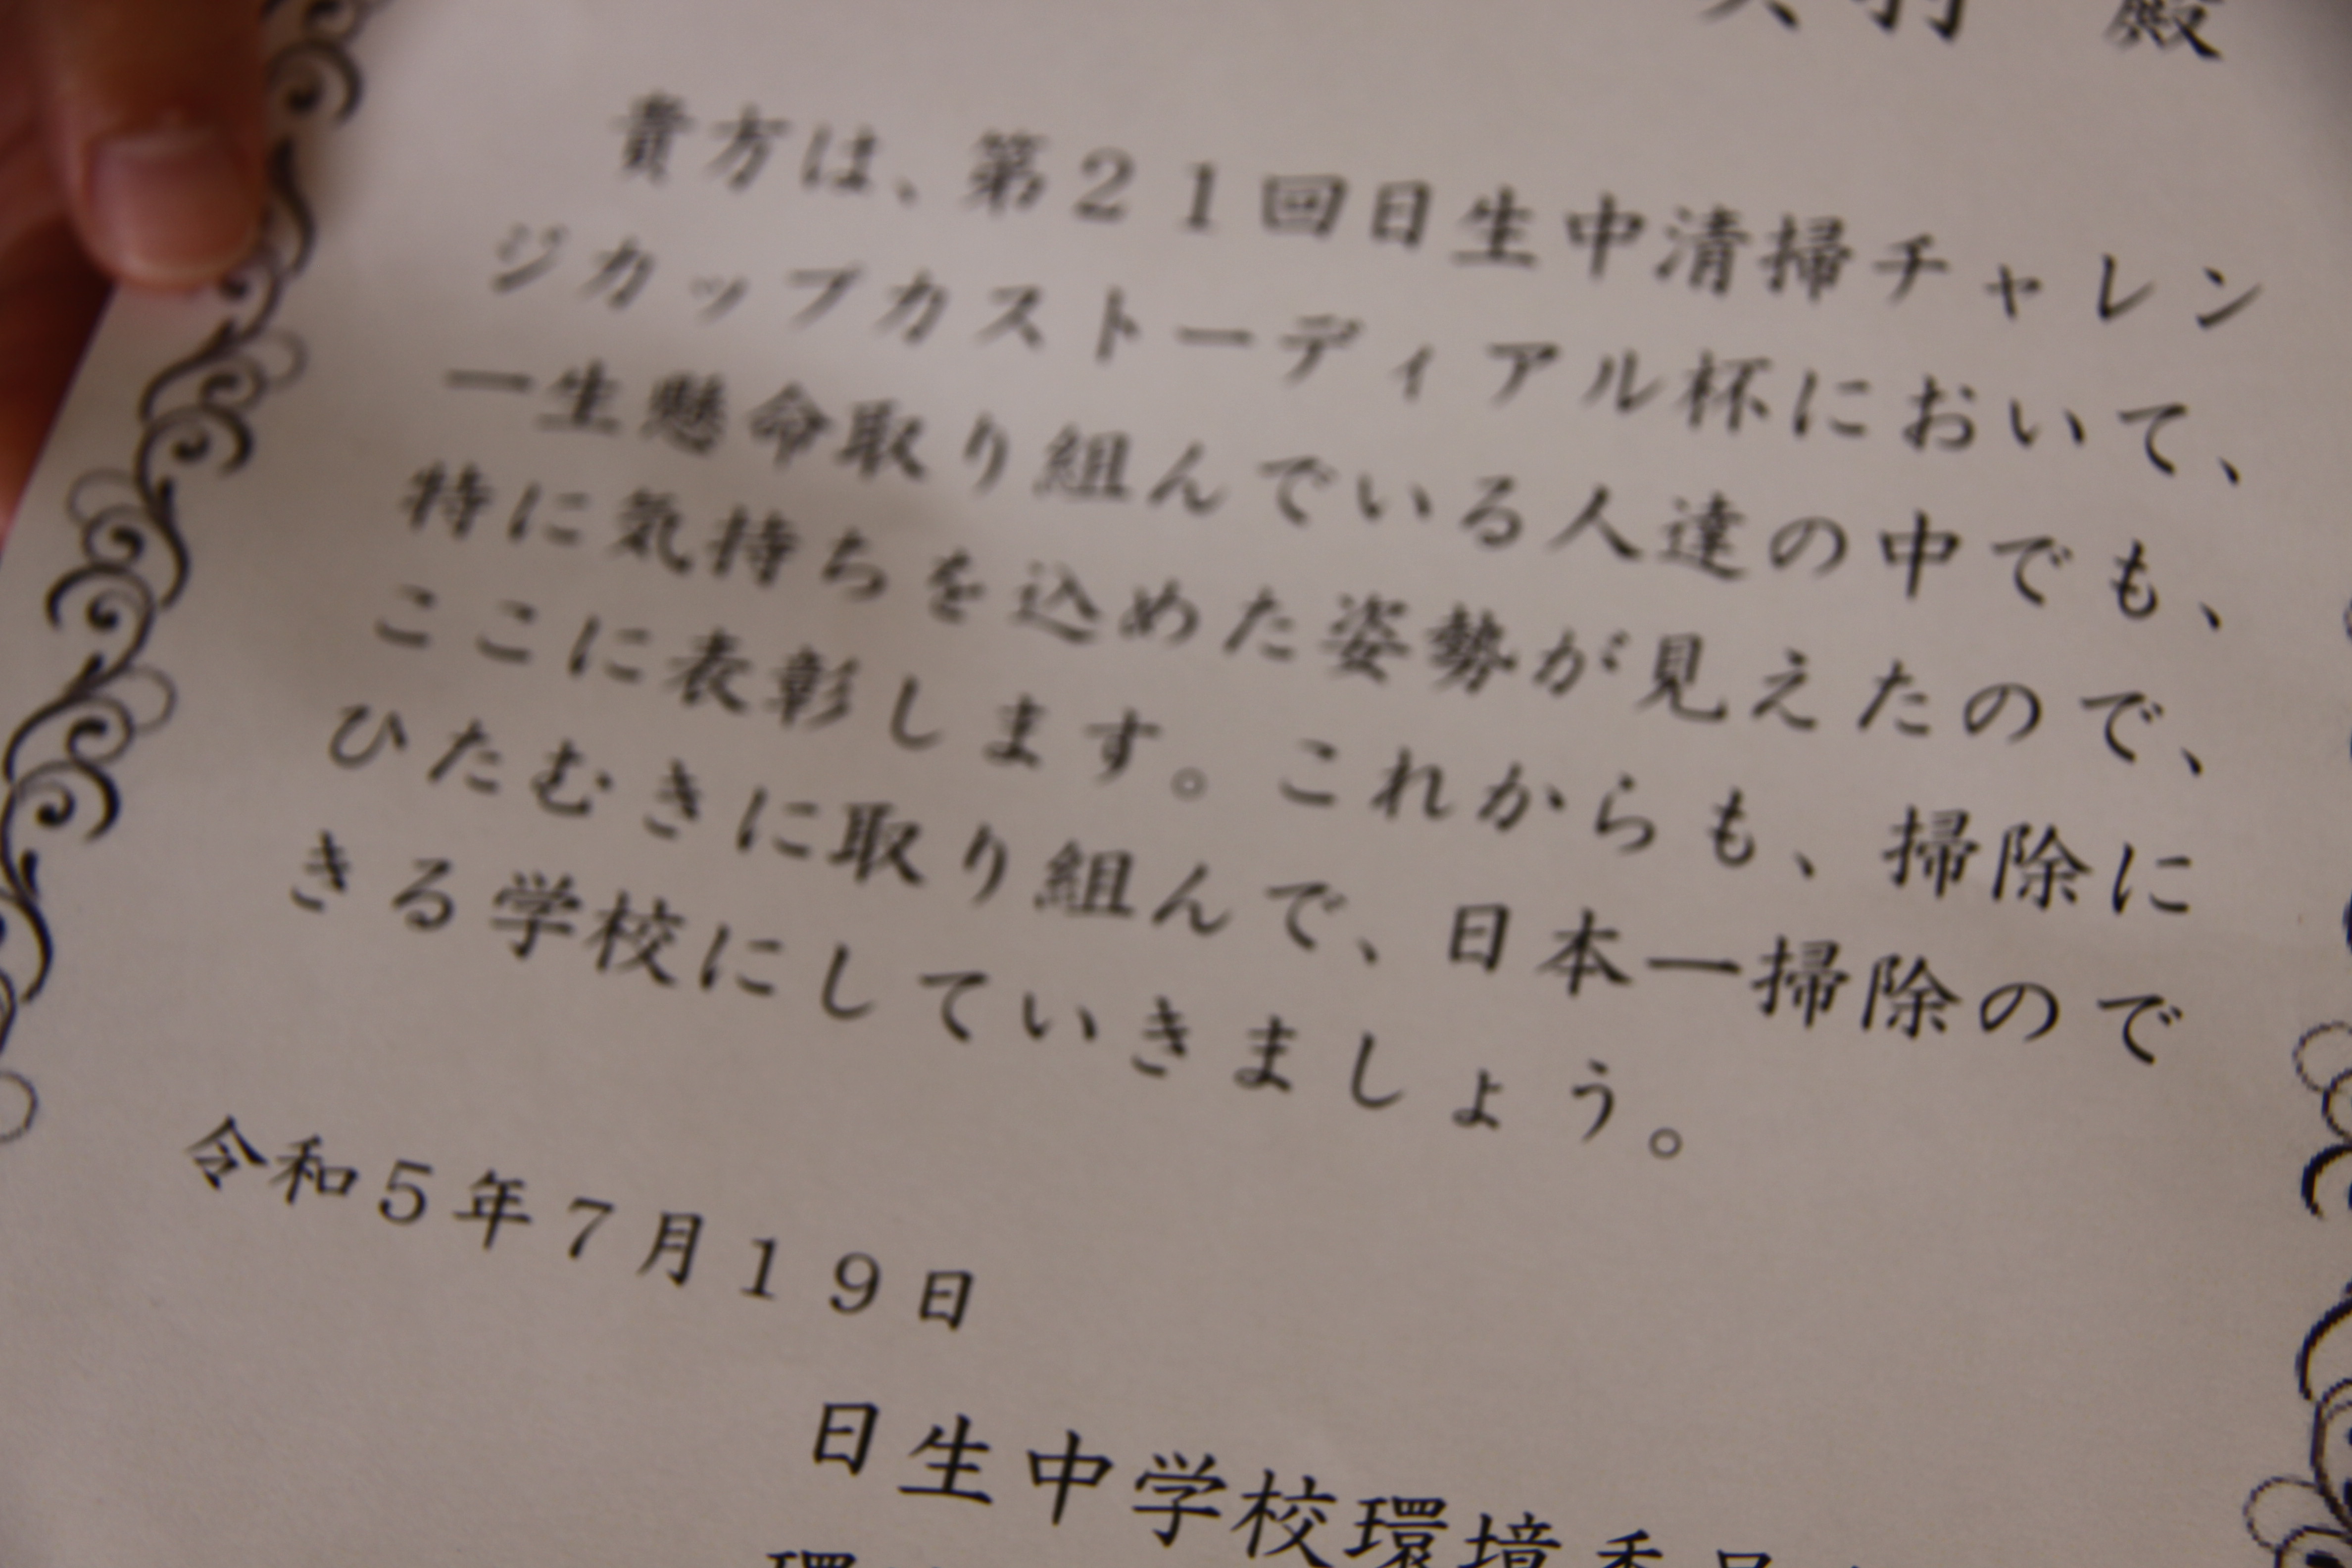 殿
貴方は、第２１回日生中清掃チャレン
ジカップカストーディアル杯において、
一生懸命取り組んでいる人達の中でも、
特に気持ちを込めた姿勢が見えたので、
ここに表彰します。これからも、掃除に
ひたむきに取り組んで、日本一掃除ので
きる学校にしていきましょう。
令和５年７月１９日
日生中学校環境委員